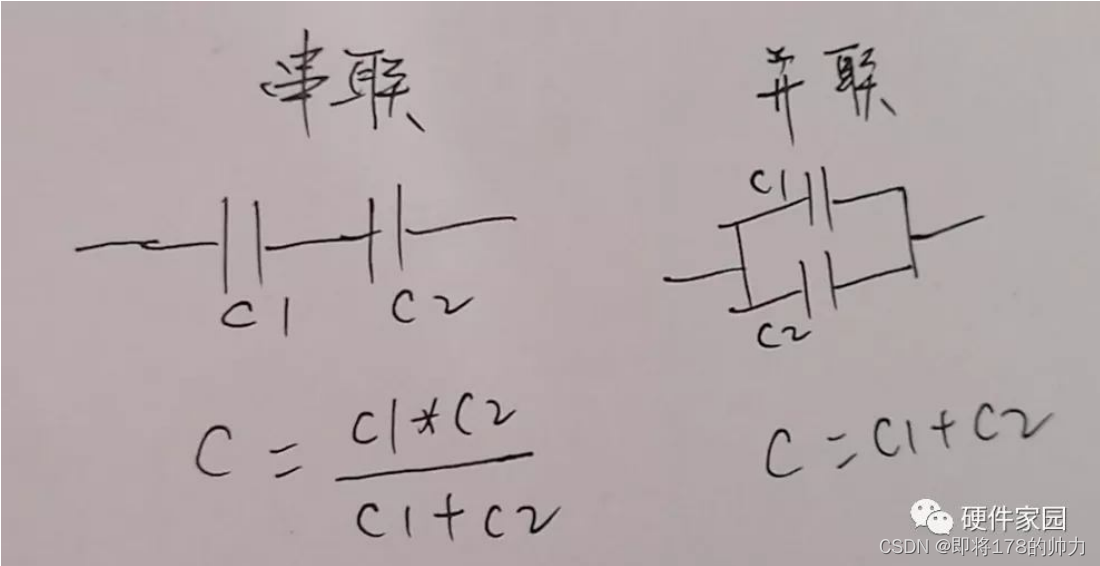 串联
并联
C1
C2
C1
C2
C = C1*C2 / C1+C2
C = C1+C2
硬件家园
CSDN @即将178的帅力